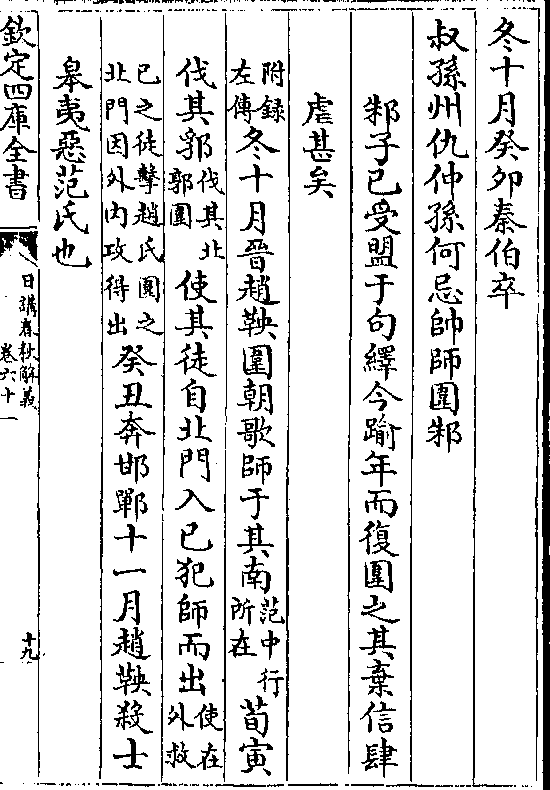 冬十月癸卯秦伯卒
叔孫州仇仲孫何忌帥師圍邾
邾子已受盟于句繹今踰年而復圍之其棄信肆
虐甚矣
附録左傳冬十月晉趙鞅圍朝歌師于其南范中行所在荀寅
伐其郛伐其北郭圍使其徒自北門入已犯師而出使在外救
已之徒擊趙氏圍之北門因外内攻得出癸丑奔邯鄲十一月趙鞅殺士
皋夷惡范氏也
欽定四庫全書
日講春秋解義
卷六十一
十九